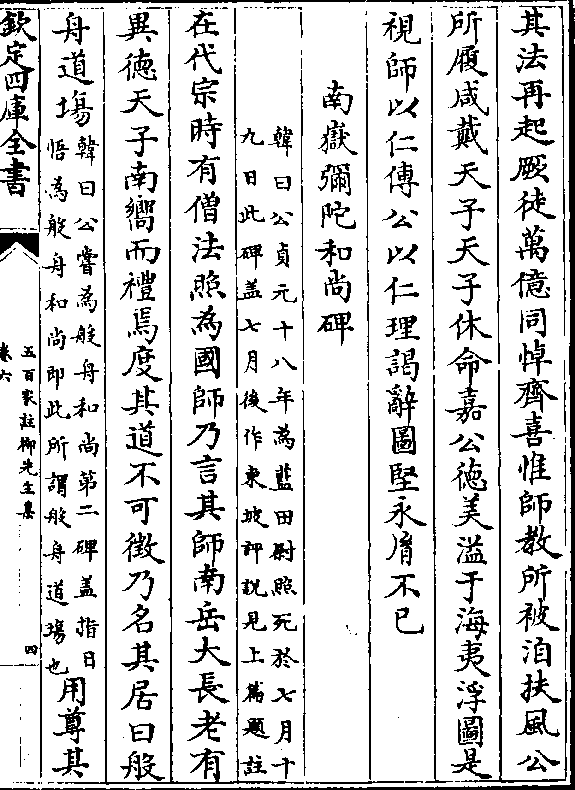 其法再起厥徒萬億同悼齊喜惟師教所被洎扶風公
所履咸戴天子天子休命嘉公德美溢于海夷浮圖是
視師以仁傳公以仁理謁辭圖堅永胤不已
南嶽彌陀和尚碑
韓曰公貞元十八年為藍田尉照死於七月十
九日此碑盖七月後作東坡評說見上篇題註
在代宗時有僧法照為國師乃言其師南岳大長老有
異德天子南嚮而禮焉度其道不可徵乃名其居曰般
舟道塲
韓曰公嘗為般舟和尚第二碑盖指日
悟為般舟和尚即此所謂般舟道塲也
用尊其
欽定四庫全書
五百家註柳先生集
卷六
四